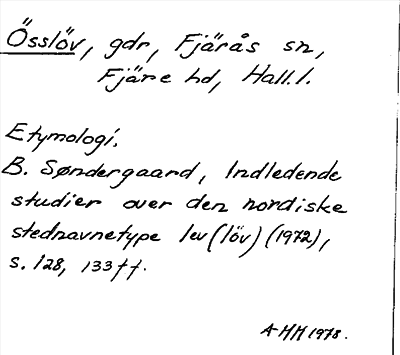 Össlöv, gdr, Fjärås sn,
Fjäre hd, Hall. l.
Etymologi.
B. Søndergaard, Indledende
studier over den nordiske
stednavnetype lev (löv) (1972),
s. 128, 133 ff.
AHH 1978.